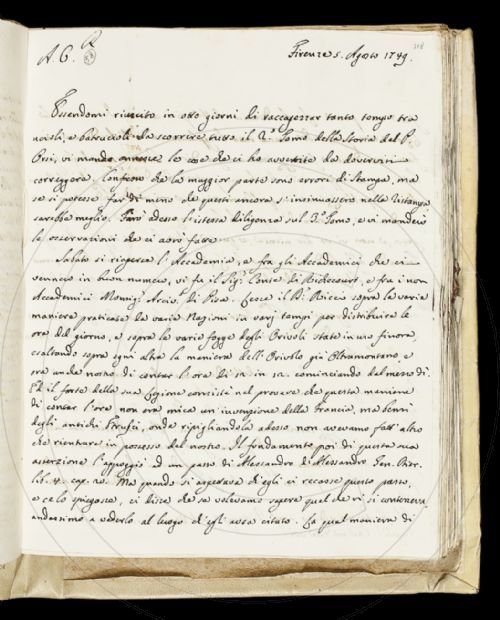 A. C.
Firenze 5. Agosto 1749.
318
Essendomi riuscito in otto giorni di raccapezzar tanto tempo tra
uccioli, e batuccioli da scorrere tutto il 2.° Tomo della Storia del P.
Orsi, vi mando annesse le cose che ci ho avvertite da doversi
correggere. Confesso che la maggior parte sono errori di Stampa, ma
se si potesse far di meno che questi ancora s'insinuassero nella Ristampa
sarebbe meglio. Farò adesso l'istessa diligenza sul 3.° Tomo, e vi manderò
le osservazioni che ci avrò fatte.
Sabato si riaperse l'Accademia, e fra gli Accademici che ci
vennero in buon numero, vi fu il Sig.r Conte di Richecourt, e fra i non
Accademici Monsig.r Arciv.o di Pisa. Lesse il P. Ricca sopra le varie
maniere praticate da varie Nazioni in varj tempi per distribuire le
ore del giorno, e sopra le varie fogge degli Orivoli state in uso finora,
esaltando sopra ogni altra la maniera dell'Orivolo già Oltramontano, e
ora anche nostro di contar l'ore di 12. in 12. cominciando dal mezzo dì.
Ed il forte della sua Lezione consistè nel provare che questa maniera
di contar l'ore non era mica un invenzione della Francia, ma bensì
degli antichi Etrusci, onde ripigliandola adesso non avevamo fatt'altro
che rientrare in possesso del nostro. Il fondamento poi di questa sua
asserzione l'appoggiò ad un passo di Alessandro di Alessandro Gen. Dier.
lib. 4. cap. 20. Ma quando si aspettava ch'egli ci recasse questo passo,
e ce lo spiegasse, ci disse che se volevamo sapere quel che vi si conteneva,
andassimo a vederlo al luogo ch'egli aveva citato. La qual maniera di